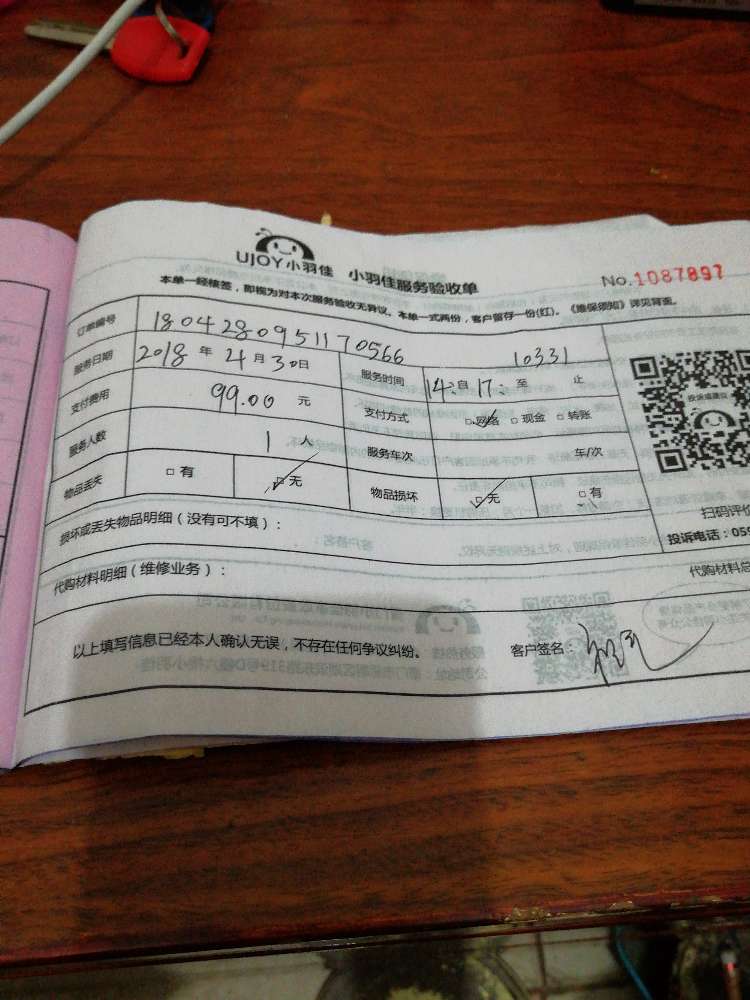 UJOY小羽佳 小羽佳服务验收单
No.1087897
本单一经核签，即视为对本次服务验收无异议。本单一式两份，客户留存一份(红)。《维保须知》详见背面。
订单编号 18042809511170566 10331
服务日期 2018 年 4 月 30 日 服务时间 14: 自 17: 至 止
支付费用 99.00 元 支付方式 □网络 □现金 □转账
服务人数 1 人 服务车次 车/次
物品丢失 □有 □无 物品损坏 □无 □有
投诉或建议
扫码评价
损坏或丢失物品明细（没有可不填）：
投诉电话：059
代购材料明细（维修业务）：
代购材料总
以上填写信息已经本人确认无误，不存在任何争议纠纷。 客户签名：